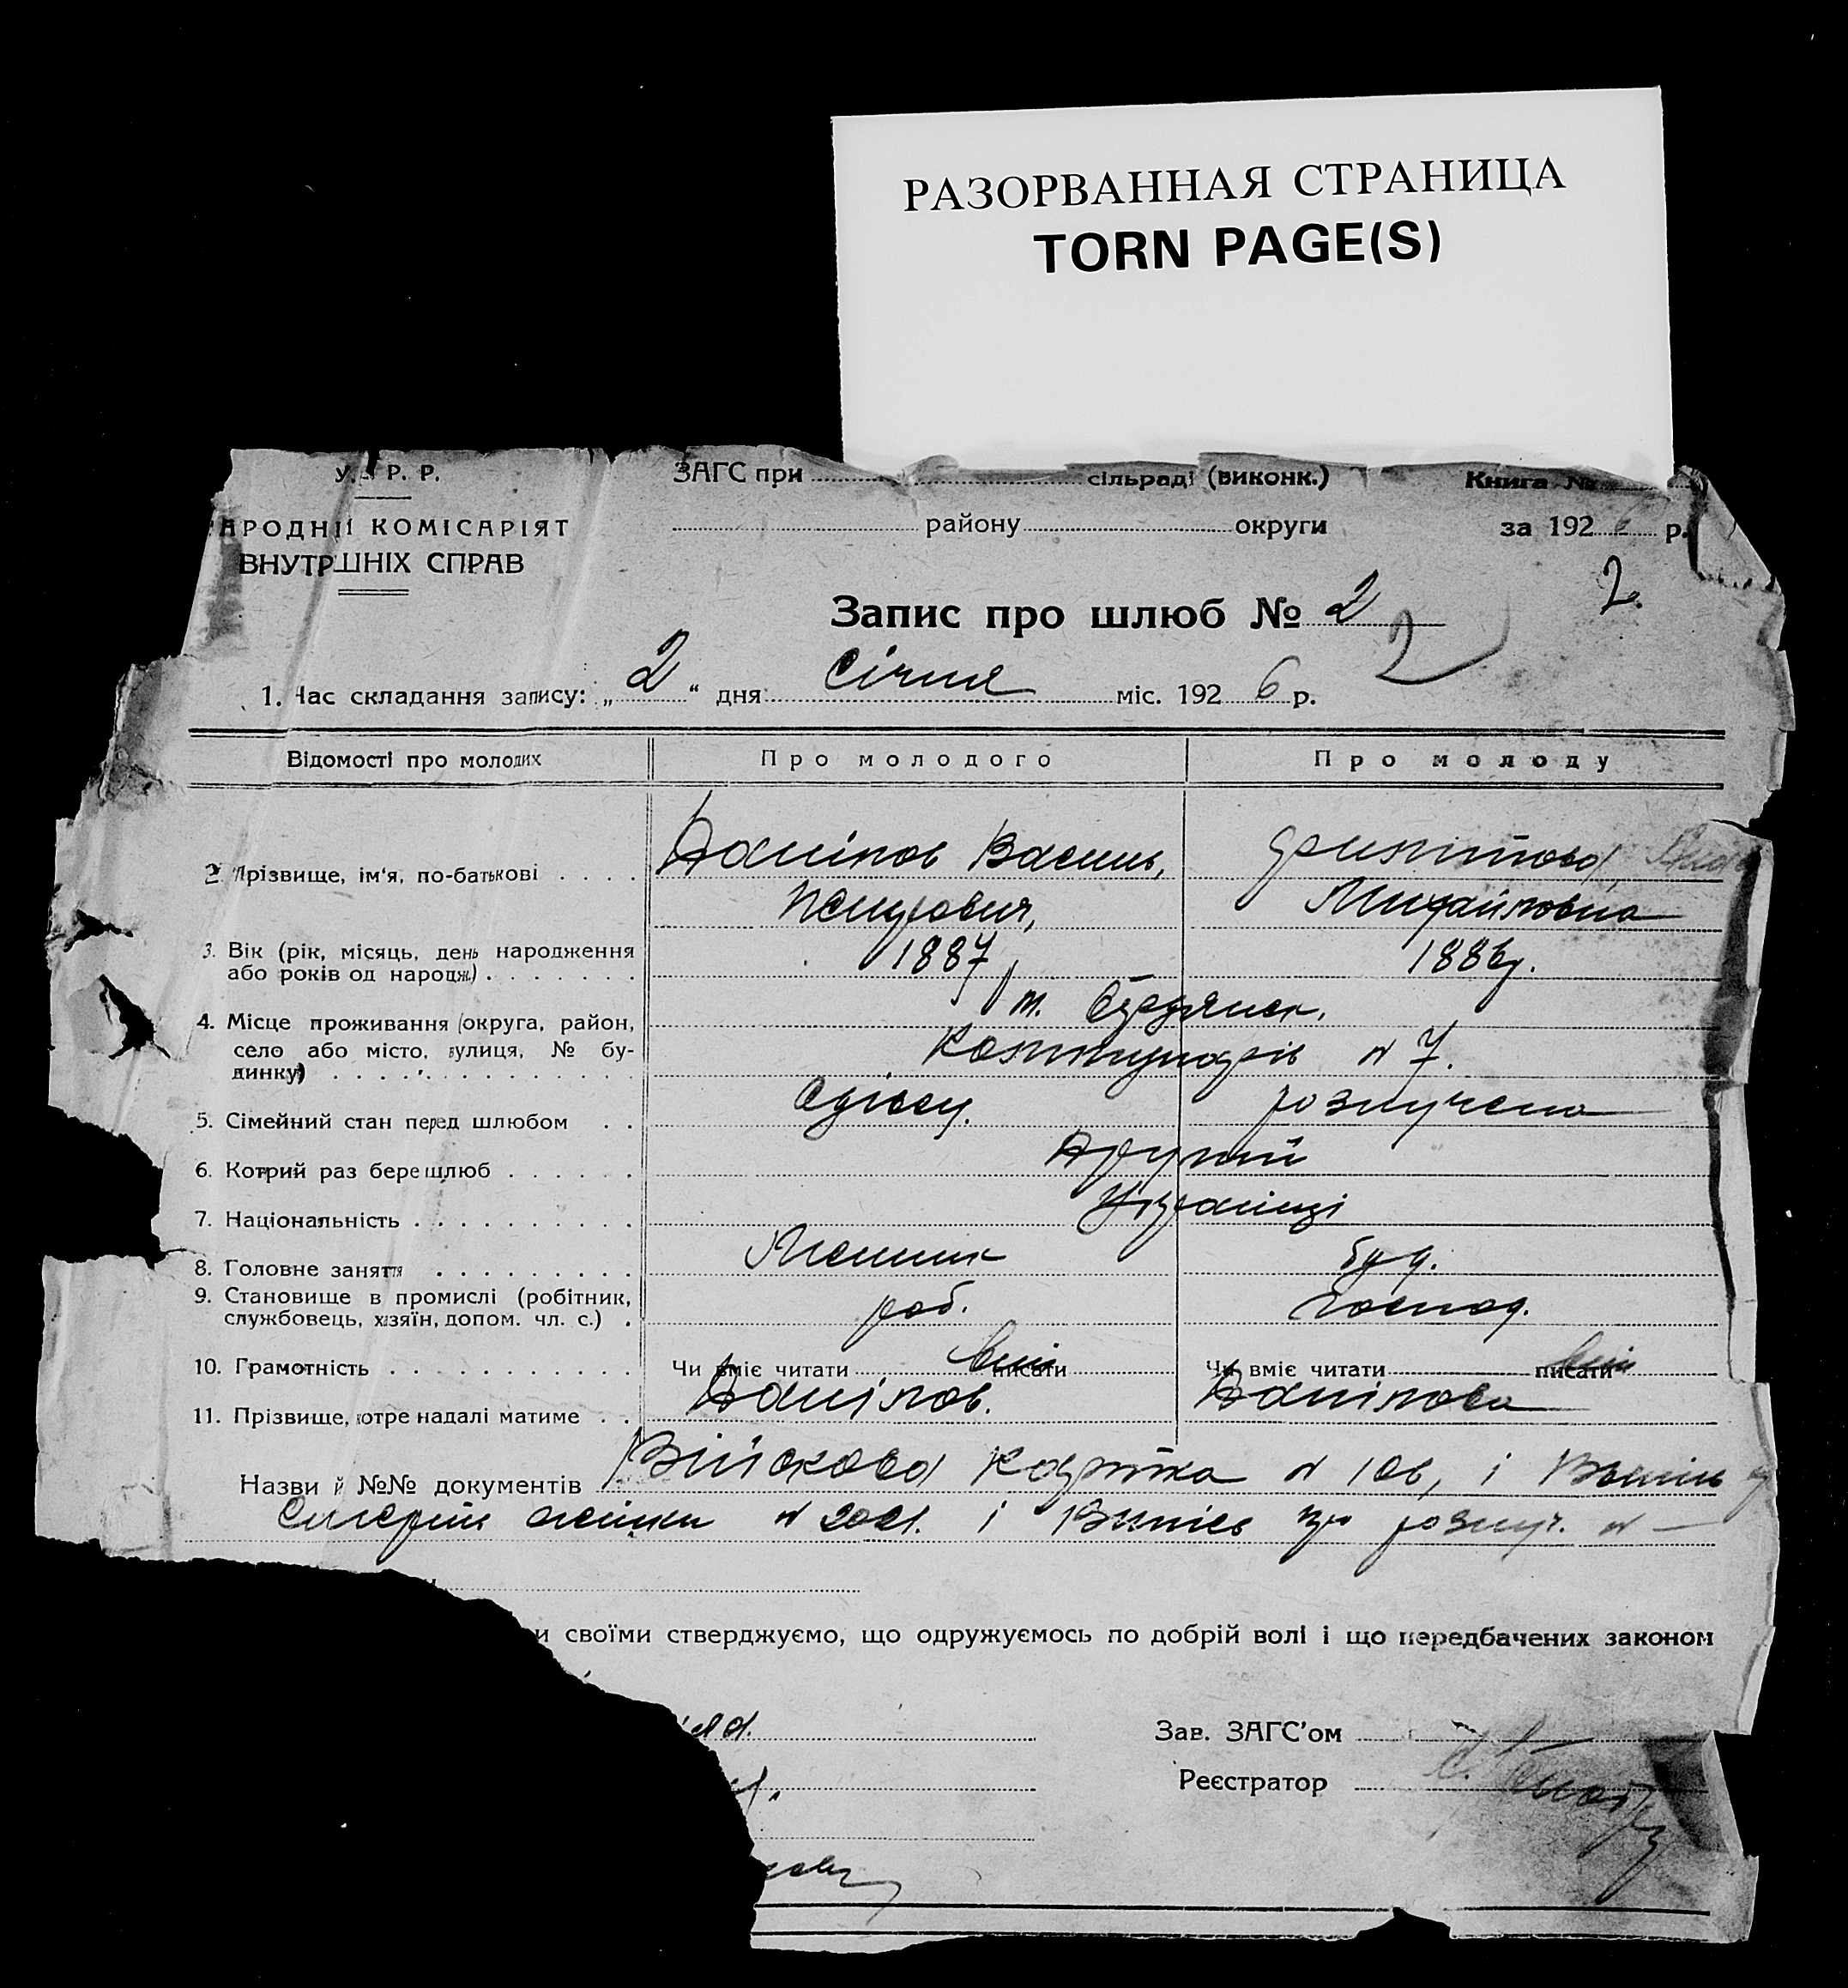 РАЗОРВАННАЯ СТРАНИЦА
TORN PAGE(S)
У. Р. Р. ЗАГС при сільраді (виконк.) Книга №
АРОДНІЙ КОМІСАРІЯТ району округи за 1926 р.
ВНУТРШНІХ СПРАВ
2.
Запис про шлюб № 2
2
1. Час складання запису: „2“ дня Січня міс. 1926 р.
Відомості про молодих Про молодого Про молоду
Данілов Василь,
2 Прізвище, ім'я, по-батькові
Михайловна
3. Вік (рік, місяць, день народження 1887 1886р.
або років од народж.)
м. Бердянск.
4. Місце проживання (округа, район,
село або місто, вулиця, № бу- Коммунарів № 7.
динку)
5. Сімейний стан перед шлюбом Одівец. розлучена
6. Котрий раз бере шлюб Другий
7. Національність Українці
8. Головне заняття
9. Становище в промислі (робітник, роб. господ.
службовець, хазяїн, допом. чл. с.)
10. Грамотність Чи вміє читати писати Чи вміє читати писати
11. Прізвище, котре надалі матиме Данілов. Данілова
Назви й №№ документів Війскова Картка № 106, і Випись
Смерти жінки № і Випись про розлуч. № —
и своїми стверджуємо, що одружуємось по добрій волі і що передбачених законом
Зав. ЗАГС'ом
Реєстратор